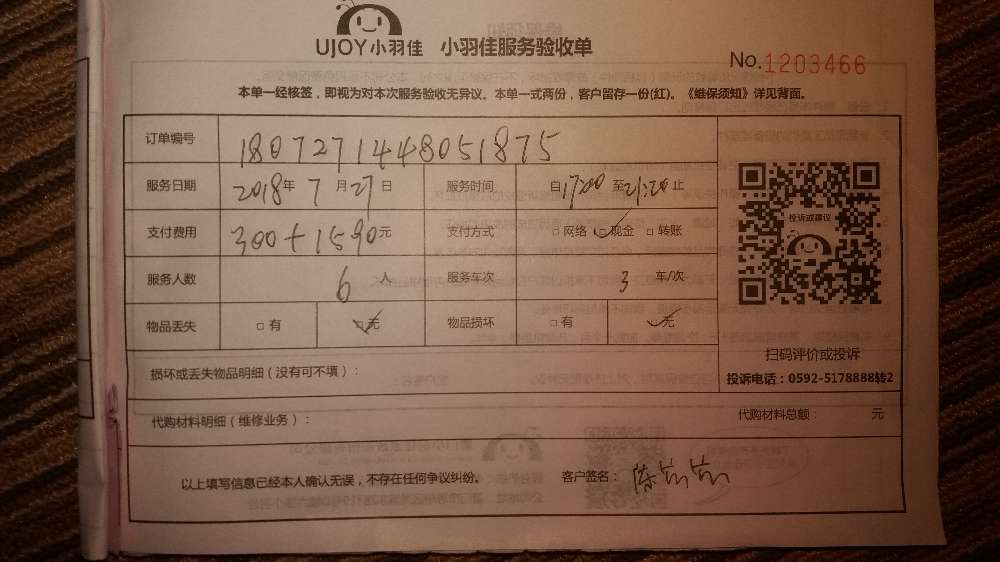 UJOY小羽佳 小羽佳服务验收单
No.1203466
本单一经核签，即视为对本次服务验收无异议。本单一式两份，客户留存一份(红)。《维保须知》详见背面。
订单编号 1807271448051875
服务日期 2018年7月27日 服务时间 自17:00至21:20止
支付费用 300+1590元 支付方式 □网络 □现金 □转账
服务人数 6人 服务车次 3车/次
物品丢失 □有 □无 物品损坏 □有 □无
投诉或建议
扫码评价或投诉
投诉电话：0592-5178888转2
损坏或丢失物品明细（没有可不填）：
代购材料明细（维修业务）： 代购材料总额： 元
以上填写信息已经本人确认无误，不存在任何争议纠纷。 客户签名：陈